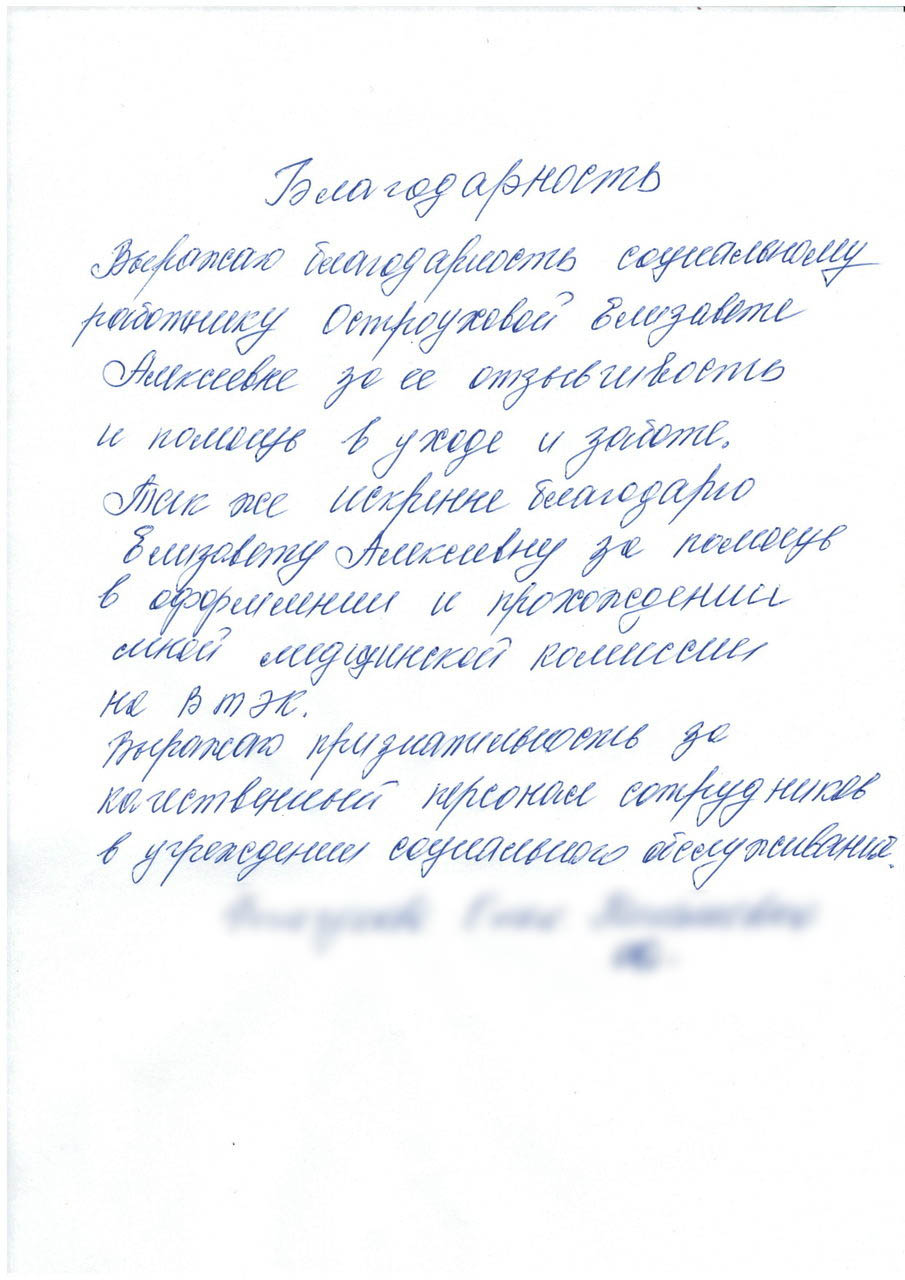 Благодарность
Выражаю благодарность социальному
работнику Остроуховой Елизавете
Алексеевне за ее отзывчивость
и помощь в уходе и заботе.
Так же искренне благодарю
Елизавету Алексеевну за помощь
в оформлении и прохождении
мной медицинской комиссии
на ВТЭК.
Выражаю признательность за
качественный персонал сотрудников
в учреждении социального обслуживания.